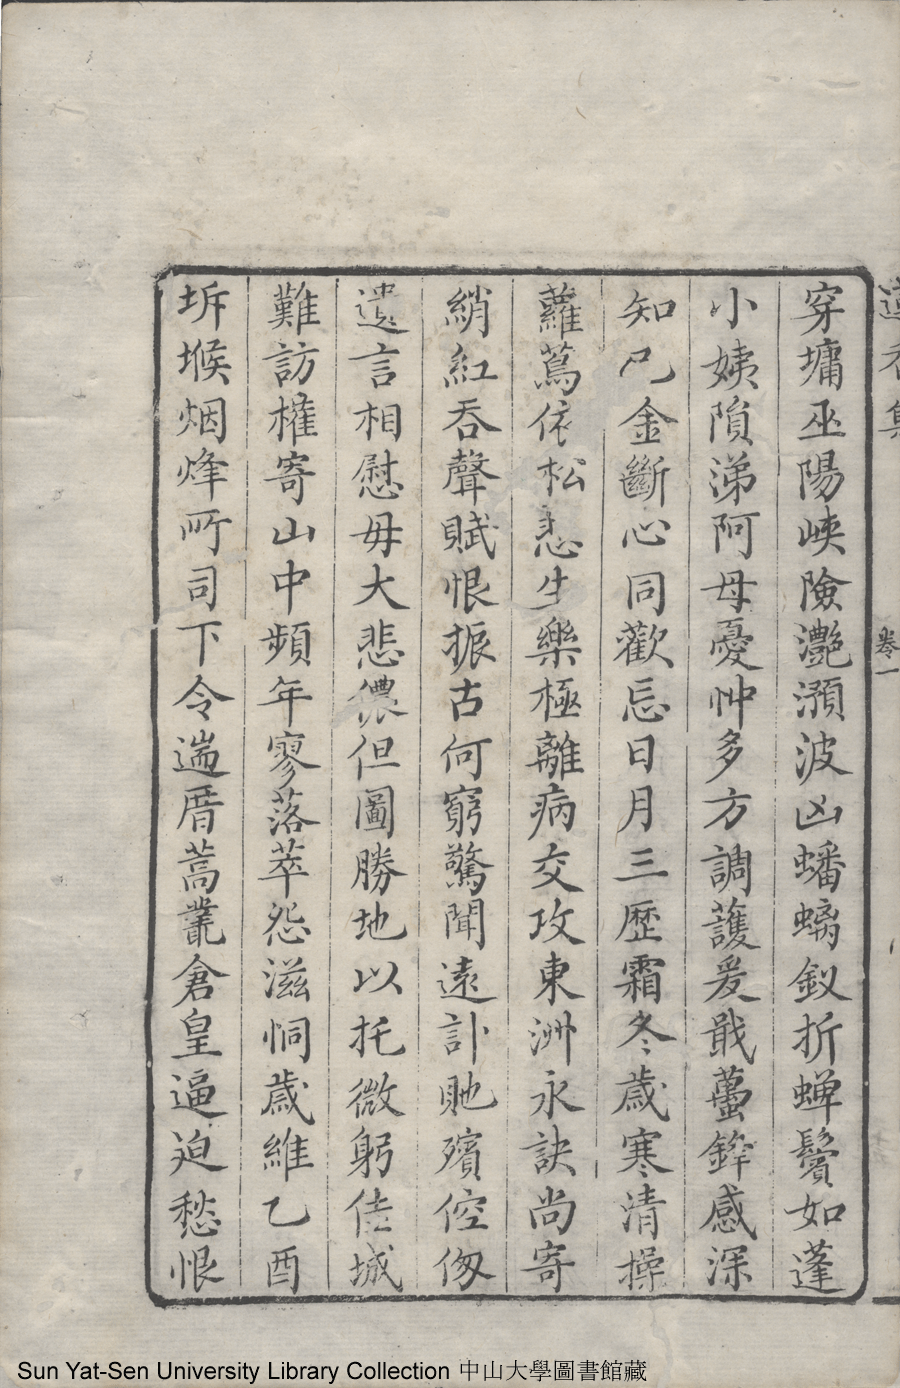 穿墉巫陽峽險灔澦波凶蟠螭釵折蟬鬢如蓬
小姨隕涕阿母憂忡多方調護爰戢蠆鋒感深
知己金斷心同歡忘日月三歷霜冬歲寒清操
蘿蔦依松悲生樂極離病交攻東洲永訣尚寄
綃紅吞聲賦恨振古何窮驚聞遠訃貤殯倥傯
遺言相慰毋大悲儂但圖勝地以托微躬佳城
難訪權寄山中頻年寥落萃怨滋恫歲維乙酉
坼堠烟烽所司下令遄厝蒿藂倉皇逼迫愁恨
卷一
Sun Yat-Sen University Library Collection 中山大學圖書館藏